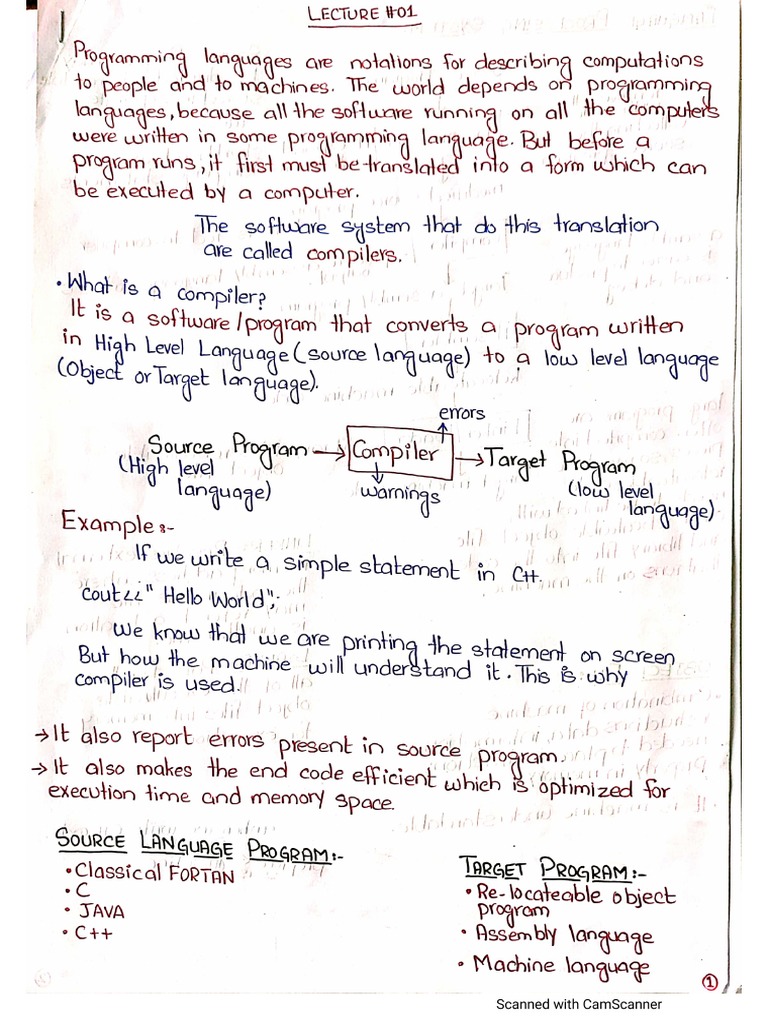 LECTURE #01
Programming languages are notations for describing computations
to people and to machines. The world depends on programming
languages, because all the software running on all the computers
were written in some programming language. But before a
program runs, it first must be translated into a form which can
be executed by a computer.
The software system that do this translation
are called compilers.
• What is a compiler?
It is a software/program that converts a program written
in High Level Language (source language) to a low level language
(Object or Target language).
errors
Source Program → Compiler → Target Program
(High level
language)
warnings
(low level
language)
Example:-
If we write a simple statement in C++.
cout<<" Hello World";
We know that we are printing the statement on screen
But how the machine will understand it. This is why
compiler is used.
→ It also report errors present in source program.
→ It also makes the end code efficient which is optimized for
execution time and memory space.
SOURCE LANGUAGE PROGRAM:-
• Classical FORTAN
• C
• JAVA
• C++
TARGET PROGRAM:-
• Re-locateable object
program
• Assembly language
• Machine language
1
Scanned with CamScanner